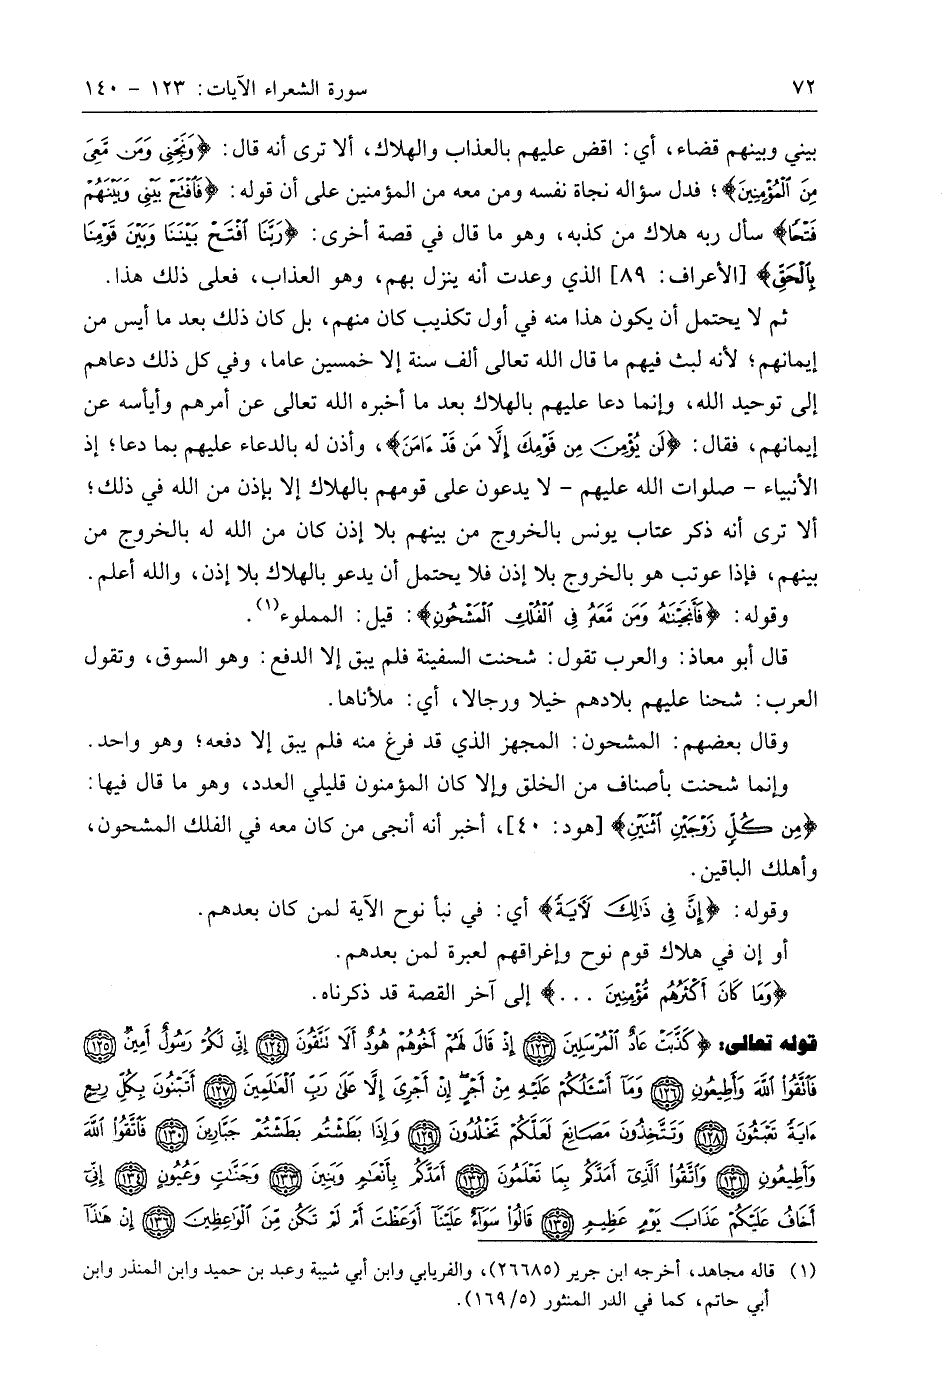 ٧٢ سورة الشعراء الآيات: ١٢٣ - ١٤٠
بيني وبينهم قضاء، أي: اقض عليهم بالعذاب والهلاك، ألا ترى أنه قال: ﴿وَنَجِّنِي وَمَن مَّعِيَ
مِنَ ٱلْمُؤْمِنِينَ﴾؛ فدل سؤاله نجاة نفسه ومن معه من المؤمنين على أن قوله: ﴿فَٱفْتَحْ بَيْنِي وَبَيْنَهُمْ
فَتْحًا﴾ سأل ربه هلاك من كذبه، وهو ما قال في قصة أخرى: ﴿رَبَّنَا ٱفْتَحْ بَيْنَنَا وَبَيْنَ قَوْمِنَا
بِٱلْحَقِّ﴾ [الأعراف: ٨٩] الذي وعدت أنه ينزل بهم، وهو العذاب، فعلى ذلك هذا.
ثم لا يحتمل أن يكون هذا منه في أول تكذيب كان منهم، بل كان ذلك بعد ما أيس من
إيمانهم؛ لأنه لبث فيهم ما قال الله تعالى ألف سنة إلا خمسين عاما، وفي كل ذلك دعاهم
إلى توحيد الله، وإنما دعا عليهم بالهلاك بعد ما أخبره الله تعالى عن أمرهم وأيأسه عن
إيمانهم، فقال: ﴿لَن يُؤْمِنَ مِن قَوْمِكَ إِلَّا مَن قَدْ ءَامَنَ﴾، وأذن له بالدعاء عليهم بما دعا؛ إذ
الأنبياء - صلوات الله عليهم - لا يدعون على قومهم بالهلاك إلا بإذن من الله في ذلك؛
ألا ترى أنه ذكر عتاب يونس بالخروج من بينهم بلا إذن كان من الله له بالخروج من
بينهم، فإذا عوتب هو بالخروج بلا إذن فلا يحتمل أن يدعو بالهلاك بلا إذن، والله أعلم.
وقوله: ﴿فَأَنجَيْنَٰهُ وَمَن مَّعَهُۥ فِي ٱلْفُلْكِ ٱلْمَشْحُونِ﴾: قيل: المملوء(١).
قال أبو معاذ: والعرب تقول: شحنت السفينة فلم يبق إلا الدفع: وهو السوق، وتقول
العرب: شحنا عليهم بلادهم خيلا ورجالا، أي: ملأناها.
وقال بعضهم: المشحون: المجهز الذي قد فرغ منه فلم يبق إلا دفعه؛ وهو واحد.
وإنما شحنت بأصناف من الخلق وإلا كان المؤمنون قليلي العدد، وهو ما قال فيها:
﴿مِن كُلٍّ زَوْجَيْنِ ٱثْنَيْنِ﴾ [هود: ٤٠]، أخبر أنه أنجى من كان معه في الفلك المشحون،
وأهلك الباقين.
وقوله: ﴿إِنَّ فِي ذَٰلِكَ لَآيَةً﴾ أي: في نبأ نوح الآية لمن كان بعدهم.
أو إن في هلاك قوم نوح وإغراقهم لعبرة لمن بعدهم.
﴿وَمَا كَانَ أَكْثَرُهُم مُّؤْمِنِينَ ...﴾ إلى آخر القصة قد ذكرناه.
قوله تعالى: ﴿كَذَّبَتْ عَادٌ ٱلْمُرْسَلِينَ ١٢٣ إِذْ قَالَ لَهُمْ أَخُوهُمْ هُودٌ أَلَا نَتَّقُونَ ١٢٤ إِنِّي لَكُمْ رَسُولٌ أَمِينٌ ١٢٥
فَٱتَّقُوا۟ ٱللَّهَ وَأَطِيعُونِ ١٢٦ وَمَآ أَسْـَٔلُكُمْ عَلَيْهِ مِنْ أَجْرٍ إِنْ أَجْرِيَ إِلَّا عَلَىٰ رَبِّ ٱلْعَٰلَمِينَ ١٢٧ أَتَبْنُونَ بِكُلِّ رِيعٍ
ءَايَةً تَعْبَثُونَ ١٢٨ وَتَتَّخِذُونَ مَصَانِعَ لَعَلَّكُمْ تَخْلُدُونَ ١٢٩ وَإِذَا بَطَشْتُم بَطَشْتُمْ جَبَّارِينَ ١٣٠ فَٱتَّقُوا۟ ٱللَّهَ
وَأَطِيعُونِ ١٣١ وَٱتَّقُوا۟ ٱلَّذِيٓ أَمَدَّكُم بِمَا تَعْلَمُونَ ١٣٢ أَمَدَّكُم بِأَنْعَٰمٍ وَبَنِينَ ١٣٣ وَجَنَّٰتٍ وَعُيُونٍ ١٣٤ إِنِّيٓ
أَخَافُ عَلَيْكُمْ عَذَابَ يَوْمٍ عَظِيمٍ ١٣٥ قَالُوا۟ سَوَآءٌ عَلَيْنَآ أَوَعَظْتَ أَمْ لَمْ تَكُن مِّنَ ٱلْوَٰعِظِينَ ١٣٦ إِنْ هَٰذَآ
(١) قاله مجاهد، أخرجه ابن جرير (٢٦٦٨٥)، والفريابي وابن أبي شيبة وعبد بن حميد وابن المنذر وابن
أبي حاتم، كما في الدر المنثور (١٦٩/٥).